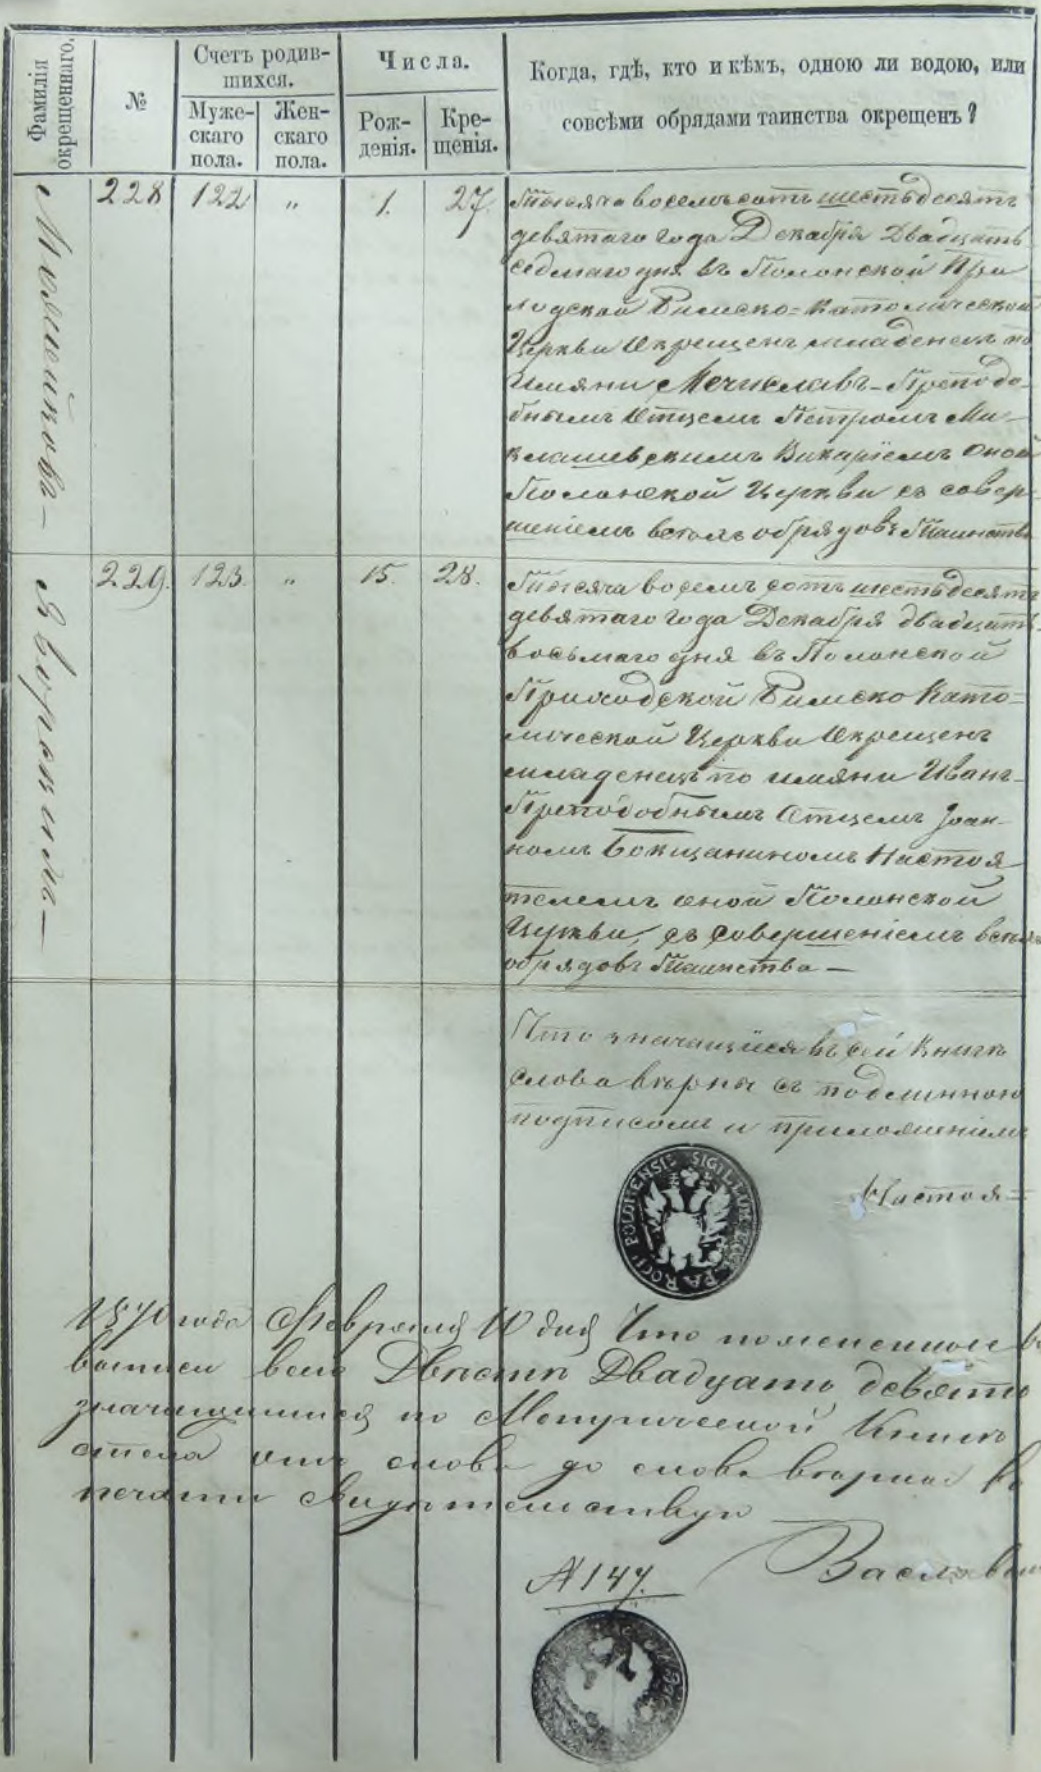 Фамилія окрещеннаго.
№
Счетъ родив-
шихся.
Муже-
скаго
пола.
Жен-
скаго
пола.
Числа.
Рож-
денія.
Кре-
щенія.
Когда, гдѣ, кто и кѣмъ, одною ли водою, или
совсѣми обрядами таинства окрещенъ?
228
122
"
1.
27.
Тысяча восемьсотъ шестьдесятъ
девятаго года Декабря Двадцать
седмаго дня въ Полонской При
ходской Римско=Католической
Церкви Окрещенъ младенецъ по
Имяни Мечиславъ - Преподо-
бнымъ Отцемъ Петромъ Ми-
клашевскимъ Викаріемъ Оной
Полонской Церкви съ совер-
шеніемъ всѣхъ обрядовъ Таинства
Яворскимъ—
229.
123
"
15.
28.
Тысяча восемь сотъ шестьдесятъ
девятаго года Декабря двадцать-
восьмаго дня въ Полонской
Приходской Римско Като=
лической Церкви Окрещенъ
младенецъ по имяни Иванъ-
Преподобнымъ Отцемъ Іоан-
номъ Бокщаниномъ Настоя
телемъ оной Полонской
Церкви, съ совершеніемъ всѣхъ
обрядовъ Таинства —
Что значащіеся въ сей книгѣ
слова вѣрны съ подлинною
подписомъ и приложеніемъ
SIGILLUM ECCL. PAROCH. POLONENSIS
Настоя=
1870 года Февраля 10 дня Что
всего Двѣсти Двадцать девять
значущимися по Метрической Книгѣ
отъ слова до слова вѣрное въ
печати Свидѣтельствую
N 147.